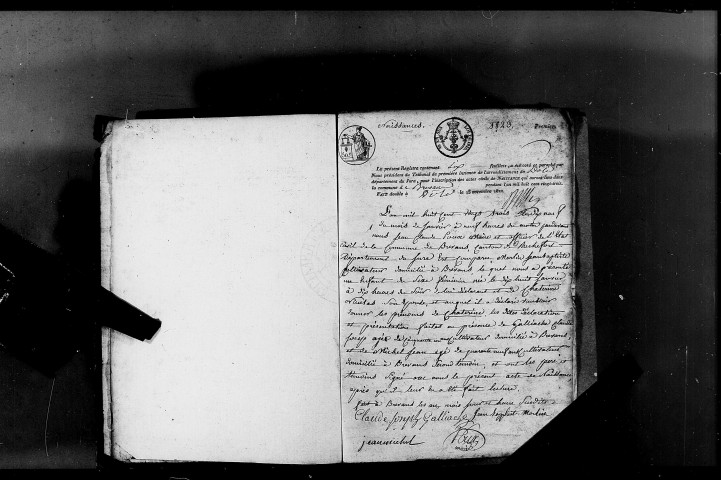 Naissances. 1823. Premier
Le présent Registre contenant six feuillets, a été coté et paraphé par
Nous président du Tribunal de première instance de l'arrondissement de Dole
département du Jura, pour l'inscription des actes civils de Naissance qui auront lieu dans
la commune d e Brevans pendant l'an mil huit cent vingt-trois.
Fait double à Dole le novembre 1822.
L'an mil huit cent vingt trois le dix neuf
du mois de janvier à neuf heures du matin pardevant
nous Jean Claude Maire et officier de l'état
civil de la Commune de Brevans Canton de Rochefort
Département du Jura Est Comparu Merlin Jean baptiste
Cultivateur domicilié à Brevans lequel nous a présenté
un Enfant du Sexe féminin née le dix huit janvier
à dix heures du Soir de lui déclarant et de Chaterine
son Epouse, et auquel il a déclaré vouloir
donner les prénoms de Chaterine, les dites déclaration
et présentation faites en présence de Galliache Claude
Joseph agé de Cinquante Cultivateur domicilié à Brevans
et de Michel Jean agé de quarante neuf ans Cultivateur
domicilié à Brevans Second témoin, et ont les père et
témoins Signé avec nous le présent acte de Naissance
après qu'il leur en a été fait lecture.
Fait à Brevans les an, mois jour et heure Susdits
Claude Joseph Galliache Jean Baptiste Merlin
jean michel